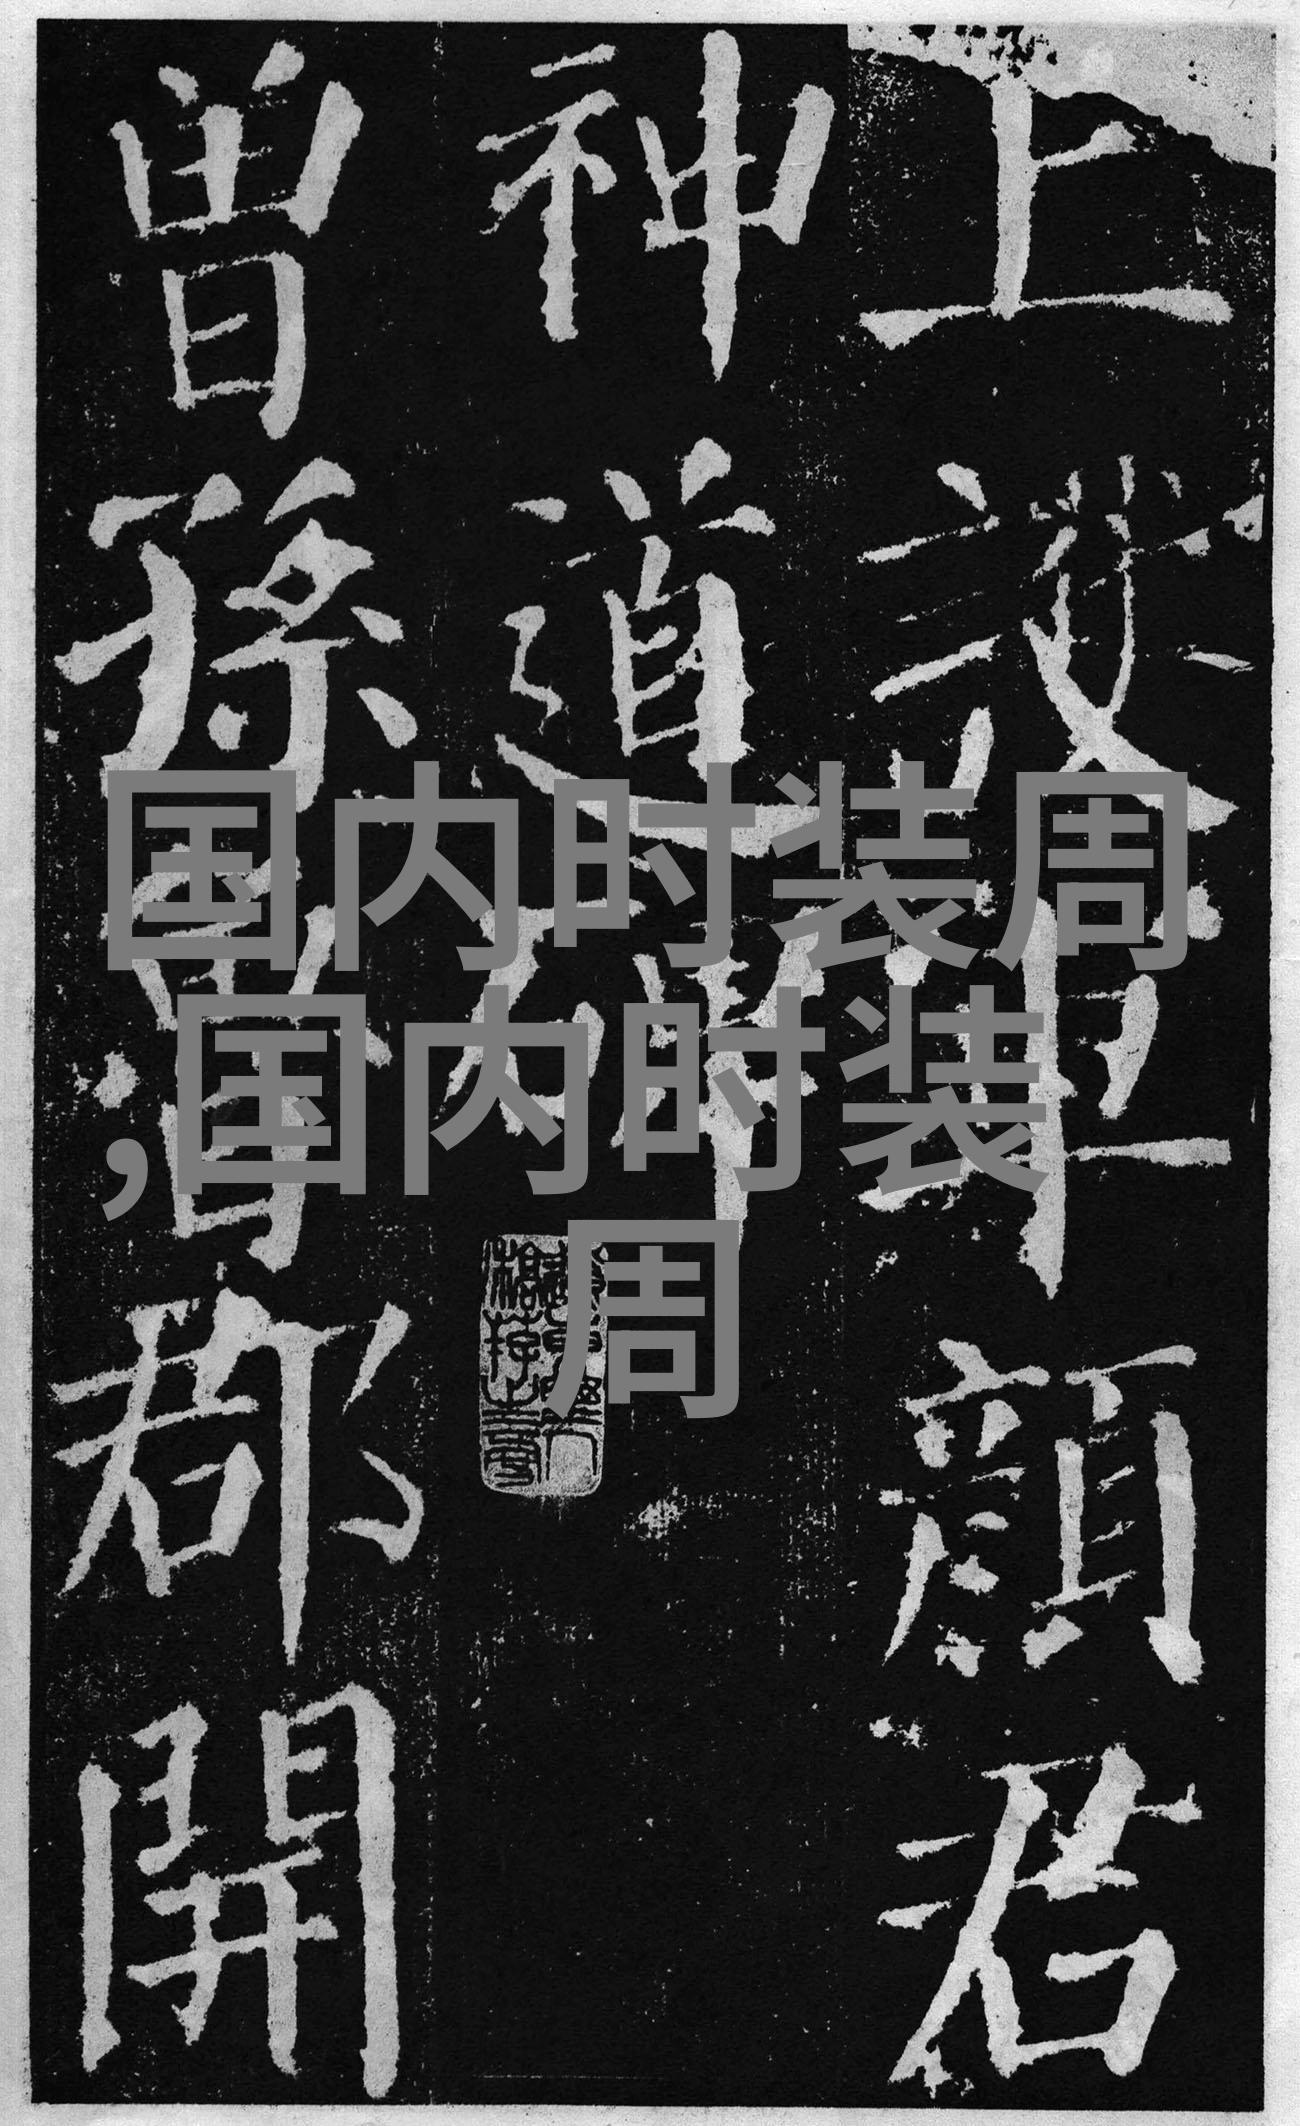 上護軍顏君
神道碑
曾孫魯郡開
国内时装周
,国内时装
周